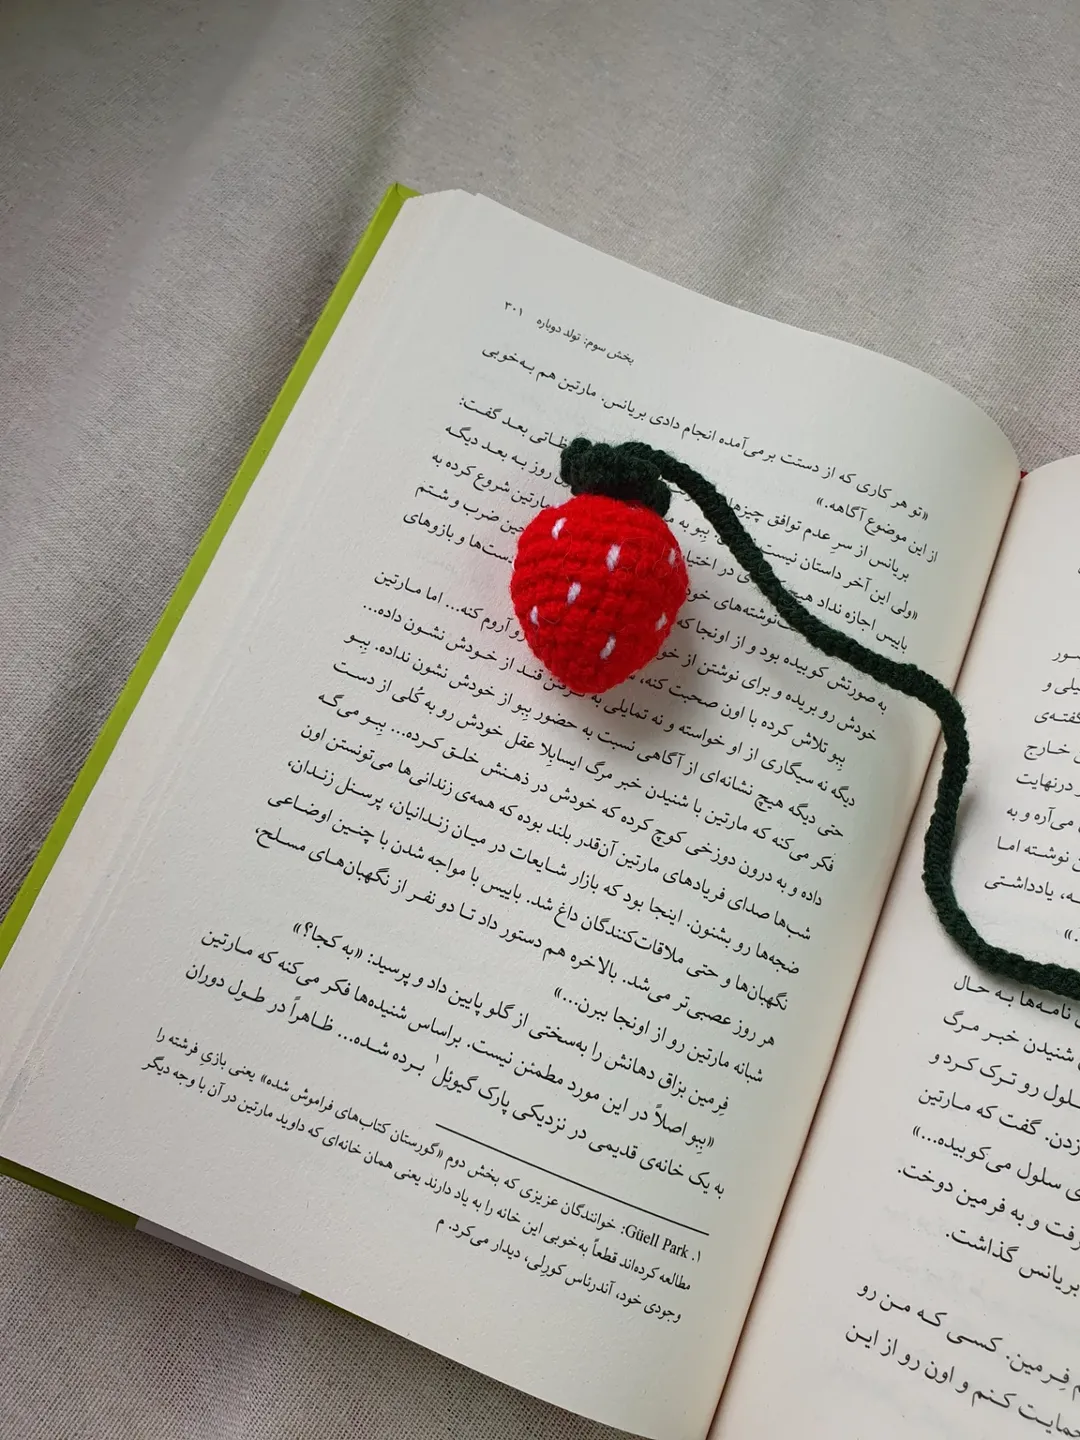 بخش سوم: تولد دوباره ۳۰۱
«تو هر کاری که از دستت برمی‌آمده انجام دادی بریانس. مارتین هم به‌خوبی
از این موضوع آگاهه.»
بریانس از سرِ عدم توافق بعد گفت:
«ولی این آخر داستان نیست روز به بعد دیگه
باییس اجازه نداد هیچ در مارتین شروع کرده به
به صورتش کوبیده بود و از اونجا که حین ضرب و شتم
خودش رو بریده و برای نوشتن از دست‌ها و بازوهای
بِبو تلاش کرده با اون صحبت کنه، رو آروم کنه... اما مارتین
دیگه نه سیگاری از او خواسته و نه تمایلی به گرفتن قند از خودش نشون داده...
حتی دیگه هیچ نشانه‌ای از آگاهی نسبت به حضور بِبو از خودش نشون نداده. بِبو
فکر می‌کنه که مارتین با شنیدن خبر مرگ ایسابِلا عقل خودش رو به کُلی از دست
داده و به درون دوزخی کوچ کرده که خودش در ذهنش خلق کرده... بِبو می‌گه
شب‌ها صدای فریادهای مارتین آن‌قدر بلند بوده که همه‌ی زندانی‌ها می‌تونستن اون
ضجه‌ها رو بشنون. اینجا بود که بازار شایعات در میان زندانیان، پرسنل زندان،
نگهبان‌ها و حتی ملاقات‌کنندگان داغ شد. باییس با مواجه شدن با چنین اوضاعی
هر روز عصبی‌تر می‌شد. بالاخره هم دستور داد تا دو نفر از نگهبان‌های مسلح،
شبانه مارتین رو از اونجا ببرن...»
فِرمین بزاق دهانش را به‌سختی از گلو پایین داد و پرسید: «به کجا؟»
«بِبو اصلاً در این مورد مطمئن نیست. براساس شنیده‌ها فکر می‌کنه که مارتین
به یک خانه‌ی قدیمی در نزدیکی پارک گیوئِل۱ برده شده... ظاهراً در طول دوران
۱. Güell Park: خوانندگان عزیزی که بخش دوم «گورستان کتاب‌های فراموش شده» یعنی بازیِ فرشته را
مطالعه کرده‌اند قطعاً به‌خوبی این خانه را به یاد دارند یعنی همان خانه‌ای که داوید مارتین در آن با وجه دیگر
وجودی خود، آندرئاس کورِلی، دیدار می‌کرد. م
خارج
درنهایت
می‌آره و به
نوشته اما
یادداشتی
نامه‌ها به حال
شنیدن خبر مرگ
رو ترک کرد و
زدن. گفت که مارتین
سلول می‌کوبیده...»
و به فرمین دوخت.
بریانس گذاشت.
فِرمین. کسی که من رو
حمایت کنم و اون رو از این